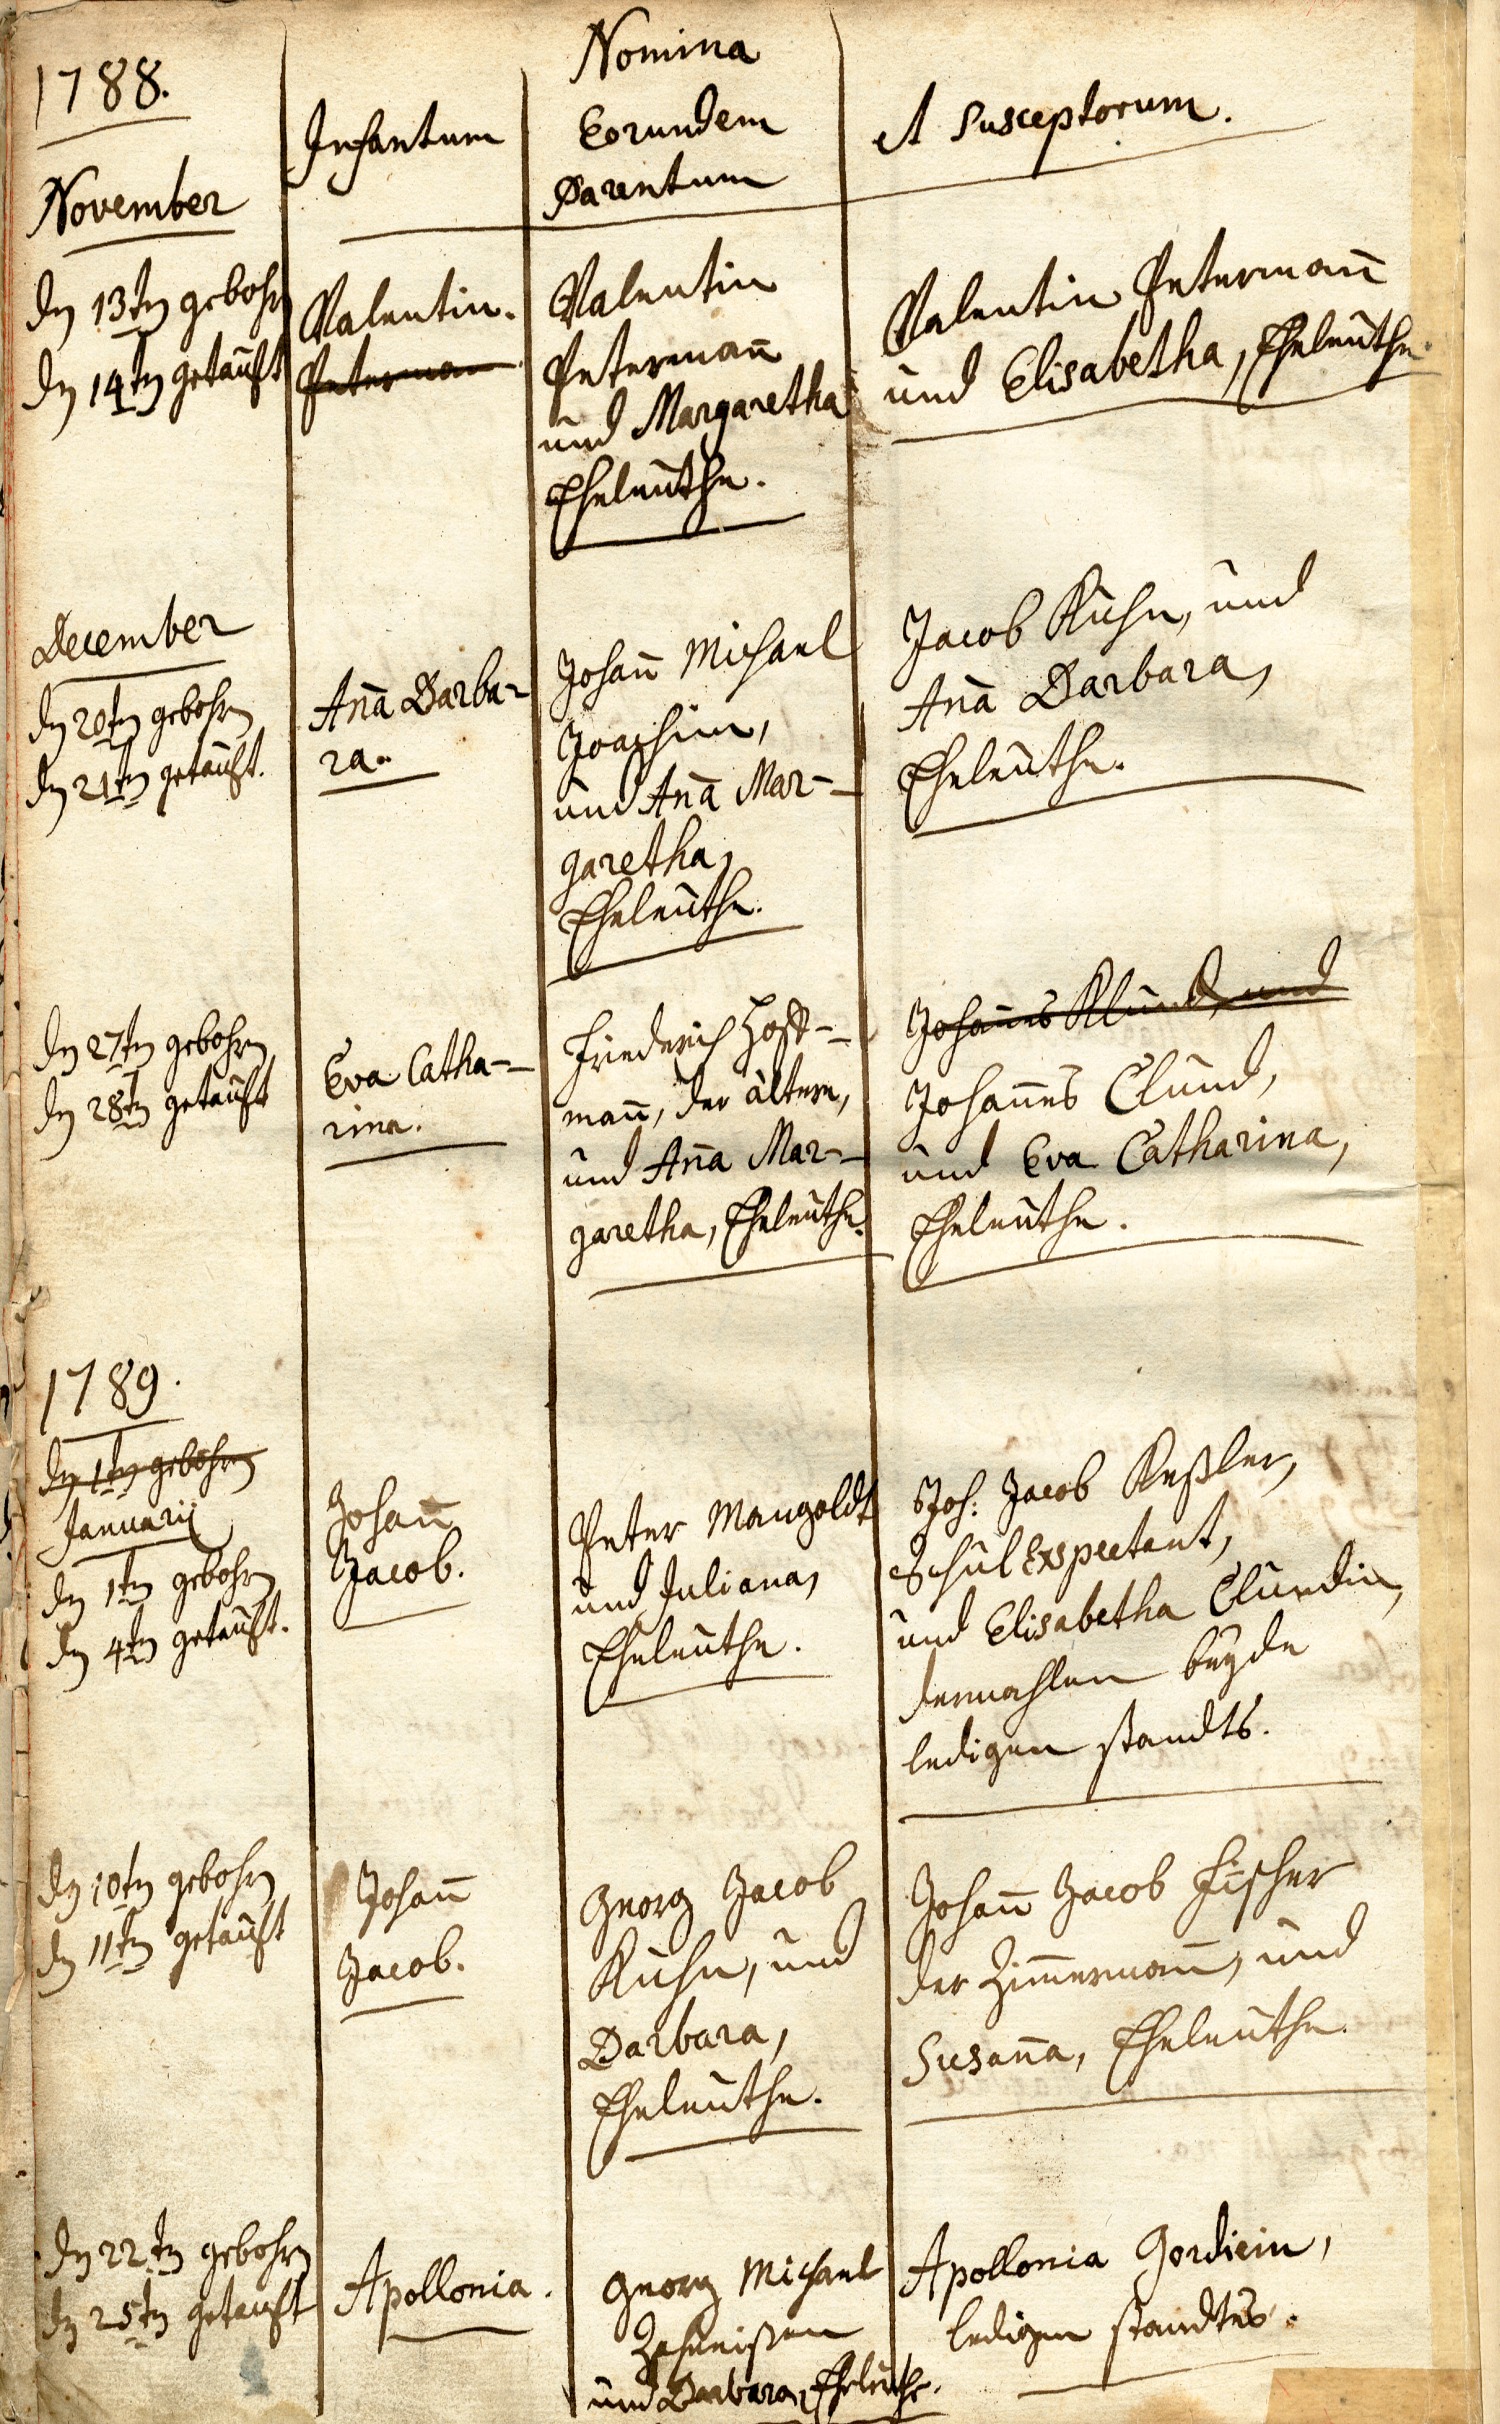 1788.
November
Infantum
Nomina
Eorundem
Parentum
et Susceptorum.
den 13ten gebohrn
den 14ten getaüft
Valentin.
Peterman
Valentin
Petermañ
und Margaretha
Eheleüthe.
Valentin Petermañ
und Elisabetha, Eheleüthe.
December
den 20ten gebohrn
den 21ten getaüft.
Añа Barba-
ra.
Johañ Michael
Joachim,
und Aña Mar-
garetha,
Eheleüthe.
Jacob Kuhn, und
Aña Barbara,
Eheleüthe.
den 27ten gebohrn
den 28ten getaüft
Eva Catha-
rina.
Friederich Hoff-
mañ, der ältere,
und Aña Mar-
garetha, Eheleüthe.
Johañes Klund, und
Johañes Clund,
und Eva Catharina,
Eheleüthe.
1789.
den 1ten gebohrn
Januarij
den 1ten gebohrn
den 4ten getaüft.
Johañ
Jacob.
Peter Mangoldt
und Juliana,
Eheleüthe.
Joh: Jacob Keßler,
Schül Exspectant,
und Elisabetha Clundin,
dermahlen beyde
ledigen standts.
den 10ten gebohrn
den 11ten getaüft
Johañ
Jacob.
Georg Jacob
Kuhn, und
Barbara,
Eheleüthe.
Johañ Jacob Fischer
der Zim̃ermañ, und
Susaña, Eheleüthe.
den 22ten gebohrn
den 25ten getauft
Apollonia.
Georg Michael
und Barbara, Eheleüthe.
Apollonia Gordiein,
ledigen standtes.